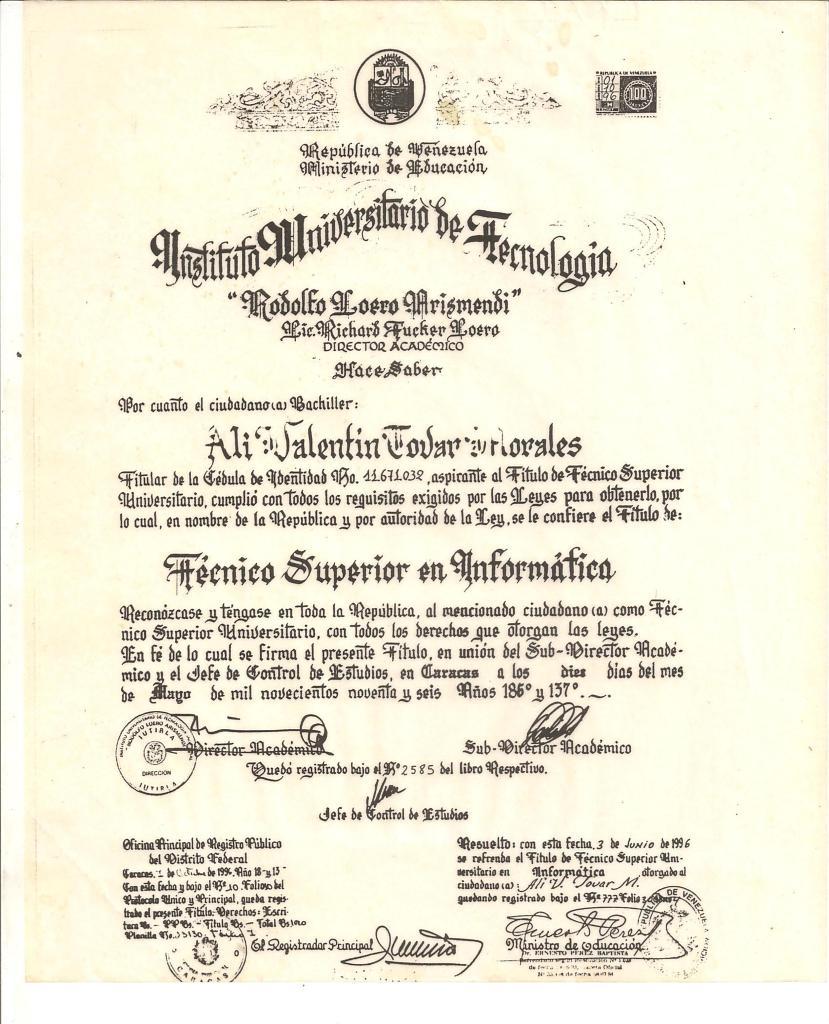 REPUBLICA DE VENEZUELA
100
República de Venezuela
Ministerio de Educación
Instituto Universitario de Tecnología
"Rodolfo Loero Arismendi"
Lic. Richard Tucker Loero
DIRECTOR ACADÉMICO
Hace Saber
Por cuanto el ciudadano(a) Bachiller:
Ali Valentin Tovar Morales
Titular de la Cédula de Identidad No. 11.671.032, aspirante al Título de Técnico Superior
Universitario, cumplió con todos los requisitos exigidos por las Leyes para obtenerlo, por
lo cual, en nombre de la República y por autoridad de la Ley, se le confiere el Título de:
Técnico Superior en Informática
Reconózcase y téngase en toda la República, al mencionado ciudadano (a) como Téc-
nico Superior Universitario, con todos los derechos que otorgan las leyes.
En fé de lo cual se firma el presente Título, en unión del Sub-Director Acadé-
mico y el Jefe de Control de Estudios, en Caracas a los diez días del mes
de Mayo de mil novecientos noventa y seis Años 186° y 137°.
INSTITUTO UNIVERSITARIO DE TECNOLOGIA
RODOLFO LOERO ARISMENDI
IUTIRLA
DIRECCION
IUTIRLA
Director Académico
Sub-Director Académico
Quedó registrado bajo el Nº 2585 del libro Respectivo.
Jefe de Control de Estudios
Oficina Principal de Registro Público
del Distrito Federal
Caracas, de de 199 Año 18 y 13
Con esta fecha y bajo el Nº 10 Folios del
Protocolo Único y Principal, queda regis-
trado el presente Título. Derechos: Escri-
tura Bs. PP Bs. Título Bs. Total Bs.
Planilla No.
El Registrador Principal
CARACAS
Resuelto: con esta fecha, 3 de Junio de 1996
se refrenda el Título de Técnico Superior Uni-
versitario en Informática otorgado al
ciudadano (a): Ali V. Tovar M.
quedando registrado bajo el Nº 777 Folio
Ernesto Perez
Ministro de Educación
Dr. ERNESTO PEREZ BAPTISTA
DE VENEZUELA